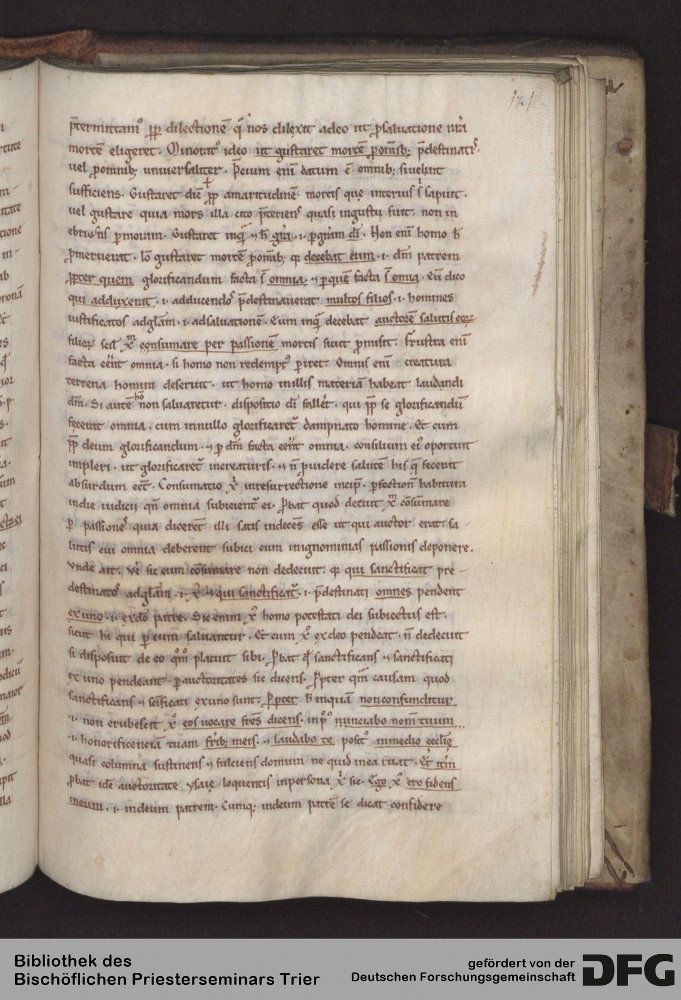 121
p̄termittam᷒ ꝓp̄ dilectionē q̄ nos dilexit adeo ut ꝓsaluatione nr̄a
mortē eligeret. Minorat᷒ ideo ut gustaret mortē ꝓomnib; p̄destinat᷒
uel ꝓomnib; uniuersaliter. P̄cium eni᷒ datum ē omnib; siuelint
sufficiens. Gustaret dic̄ ꝓp̄ amaritudinē mortis que interius
uel gustare quia mors illa cito p̄teriens quasi ingustu fuit. non in
p̱moram. Gustaret inq̄ ⁊ h̄ gr̄a .i. p̱grām dī. Non eni᷒ homo h̄
ꝓmeruerat. Iō gustaret mortē ꝓomnib; decebat eum .i. dm̄ patrem
ꝓpter quem glorificandum facta s̄ omnia. ⁊ p̱quē facta s̄ omnia. Eū dico
qui adduxerat .i. adducendos p̄destinauerat multos filios .i. homines
iustificatos adglām .i. adsaluationē. Eum inq̄ decebat auctorē salutis eoꝝ
filioꝝ scīl xp̄m consumare per passionē mortis sicut ꝓmisit. Frustra eni᷒
facta eēnt omnia. si homo non redempt᷒ p̱iret. Omnis eni᷒ creatura
terrena homini deseruit. ut homo inillis materiā habeat laudandi
dm̄. Si autē homo non saluaretur. dispositio dī fallet᷒. qui ꝓp̄ se glorificandū
fecerat omnia. cum innullo glorificaret᷒ dampnato homine. Et cum
ꝓp̄ deum glorificandum. ⁊ p̱ dm̄ facta eēnt omnia. consilium ei᷒ oportuit
impleri. ut glorificaret᷒ increaturis. ⁊ n̄ ꝓuidere salutē his q̄ fecerit
absurdum eēt. Consumatio xp̄i inresurrectione incip̄. p̱fectionē habitura
indie iudicii qn̄ omnia subicient᷒ ei. Ꝓbat quod decuit xp̄m cōsumare
p̱ passionē. quia dicerent illi satis indecēs esse ut qui auctor erat sa-
lutis cui omnia deberent subici eum inignominias passionis deponere.
Vnde ait. Verē sic eum cōsumare non dedecuit. qui sanctificat pre-
destinatos adglām .i. xp̄s ⁊ qui sanctificat᷒ .i. p̄destinati omnes pendent
ex uno .i. exdō patre. Sic enim xp̄s homo potestati dei subiectus est.
sicut hi qui p̱ eum saluantur. Et cum xp̄s exdeo pendeat. n̄ dedecuit
si disposuit de eo qm̄o placuit sibi. Ꝓbat qd̄ sanctificans ⁊ sanctificati
ex uno pendeant. p̱auctoritates sic dicens. Ꝓpter qm̄ causam quod
sanctificans ⁊ scīficati exuno sunt. Ꝓpter h̄ inquam nonconfunditur
.i. non erubescit xp̄s eos uocare frēs dicens. nunciabo nom̄ tuum
.i. honorificenciā tuam frīb; meis. ⁊ laudabo te posit᷒ inmedio ecclīe
quasi columna sustinens ⁊ fulciens domum ne quid inea ruat. Et itm̄
ꝓbat idē auctoritate ysaie loquentis inpersona xp̄i sic. Ego xp̄s ero fidens
ineum .i. indeum patrem. Cumq; indeum patrē se dicat confidere
Bibliothek des
Bischöflichen Priesterseminars Trier
gefördert von der
Deutschen Forschungsgemeinschaft
DFG